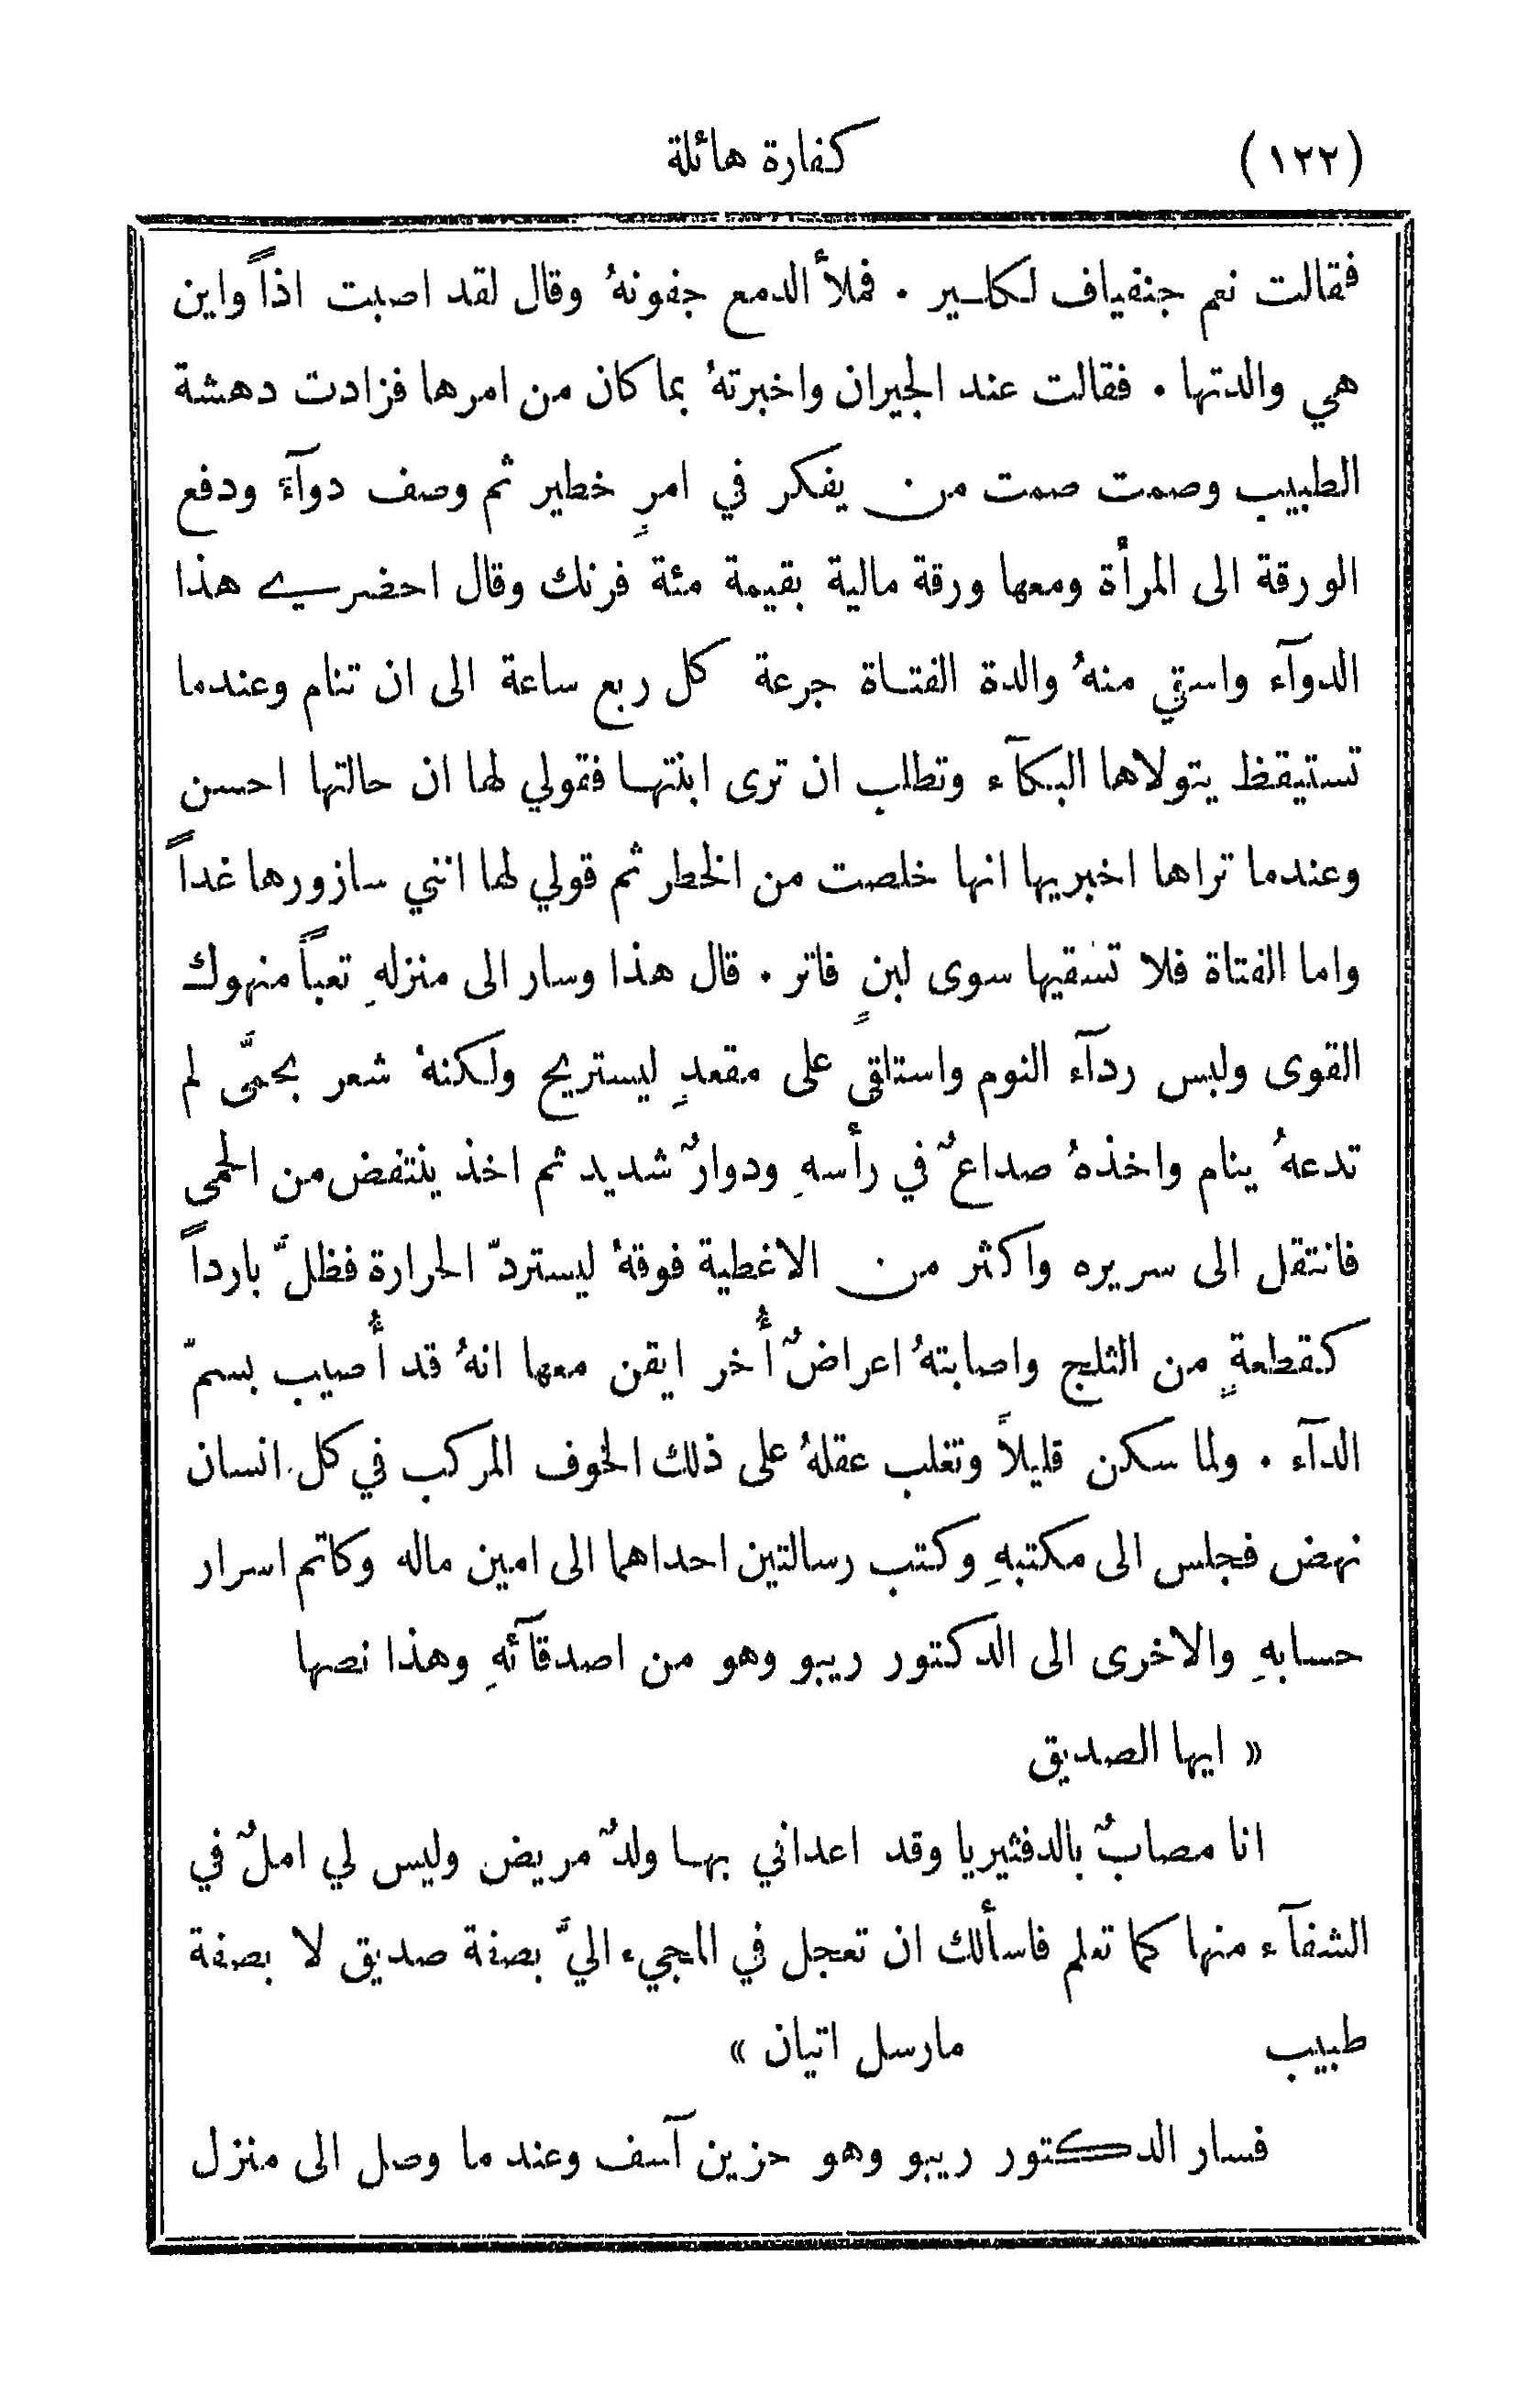 (١٢٢) كفارة هائلة
فقالت نعم جنفياف لكلسير . فملأ الدمع جفونهُ وقال لقد اصبت اذاً واين
هي والدتها . فقالت عند الجيران واخبرتهُ بما كان من امرها فزادت دهشة
الطبيب وصمت صمت من يفكر في امرٍ خطير ثم وصف دوآءً ودفع
الورقة الى المرأة ومعها ورقة مالية بقيمة مئة فرنك وقال احضري هذا
الدوآء واسقي منهُ والدة الفتاة جرعة كل ربع ساعة الى ان تنام وعندما
تستيقظ يتولاها البكآء وتطلب ان ترى ابنتها فقولي لها ان حالتها احسن
وعندما تراها اخبريها انها خلصت من الخطر ثم قولي لها انني سازورها غداً
واما الفتاة فلا تسقيها سوى لبنٍ فاتر . قال هذا وسار الى منزلهِ تعباً منهوك
القوى ولبس ردآء النوم واستلقى على مقعدٍ ليستريح ولكنهُ شعر بحمَّى لم
تدعهُ ينام واخذهُ صداعٌ في رأسهِ ودوارٌ شديد ثم اخذ ينتفض من الحمى
فانتقل الى سريره واكثر من الاغطية فوقهُ ليستردّ الحرارة فظلَّ بارداً
كقطعةٍ من الثلج واصابتهُ اعراضٌ أُخر ايقن معها انهُ قد أُصيب بسمّ
الدآء . ولما سكن قليلاً وتغلب عقلهُ على ذلك الخوف المركب في كل انسان
نهض فجلس الى مكتبهِ وكتب رسالتين احداهما الى امين ماله وكاتم اسرار
حسابهِ والاخرى الى الدكتور ريبو وهو من اصدقآئهِ وهذا نصها
« ايها الصديق
انا مصابٌ بالدفثيريا وقد اعداني بها ولدٌ مريض وليس لي املٌ في
الشفآء منها كما تعلم فاسألك ان تعجل في المجيء اليَّ بصفة صديق لا بصفة
طبيب مارسل اتيان »
فسار الدكتور ريبو وهو حزين آسف وعند ما وصل الى منزل